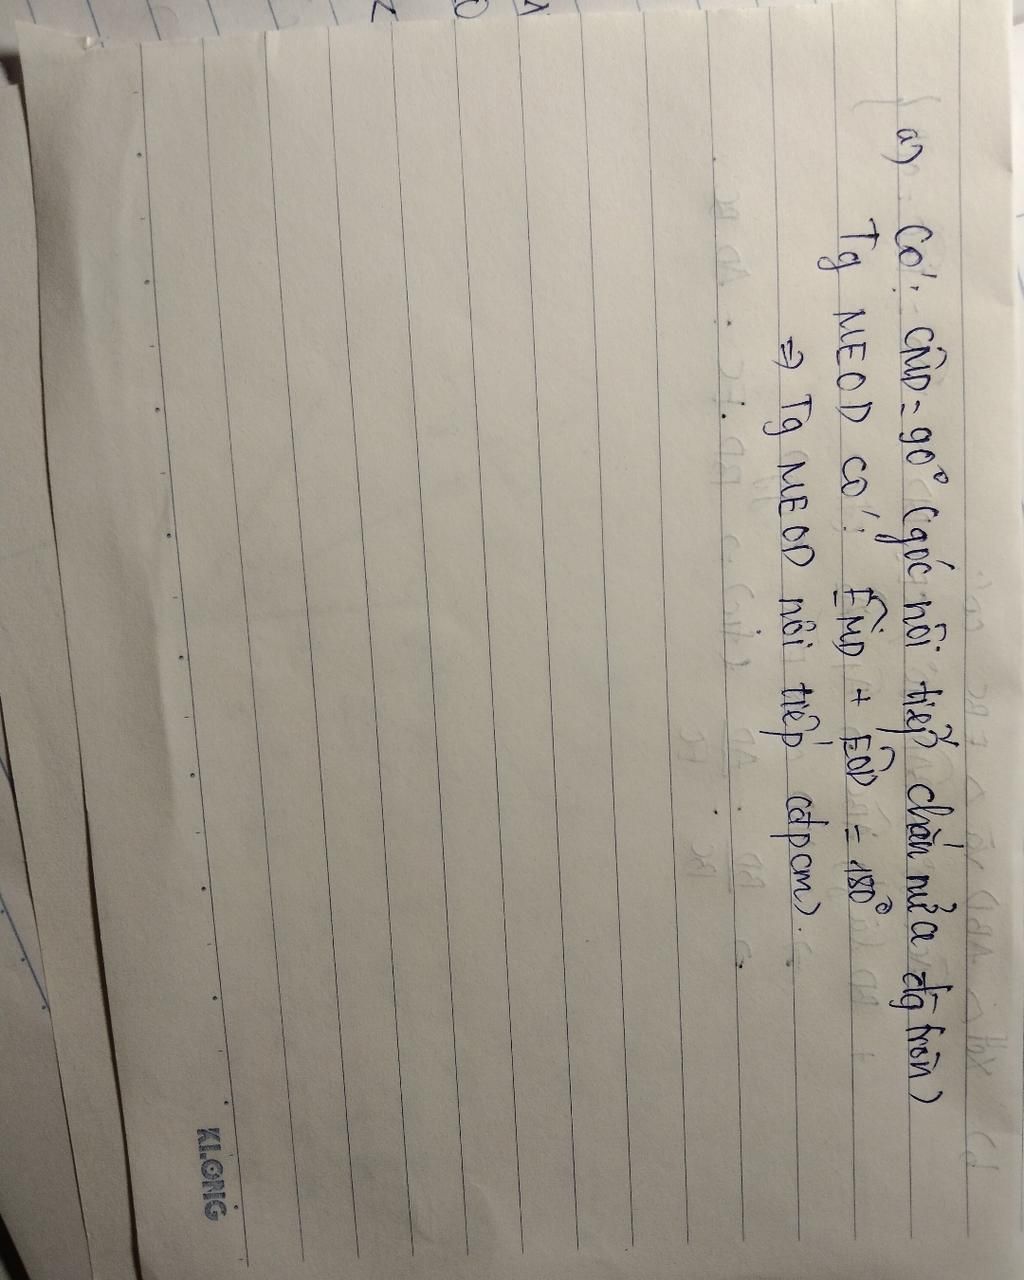 a) Có: CM̂D = 90° (góc nội tiếp chắn nửa đg tròn)
Tg MEOD có: EM̂D + EÔD = 180°
=> Tg MEOD nội tiếp (đpcm).
KLONG